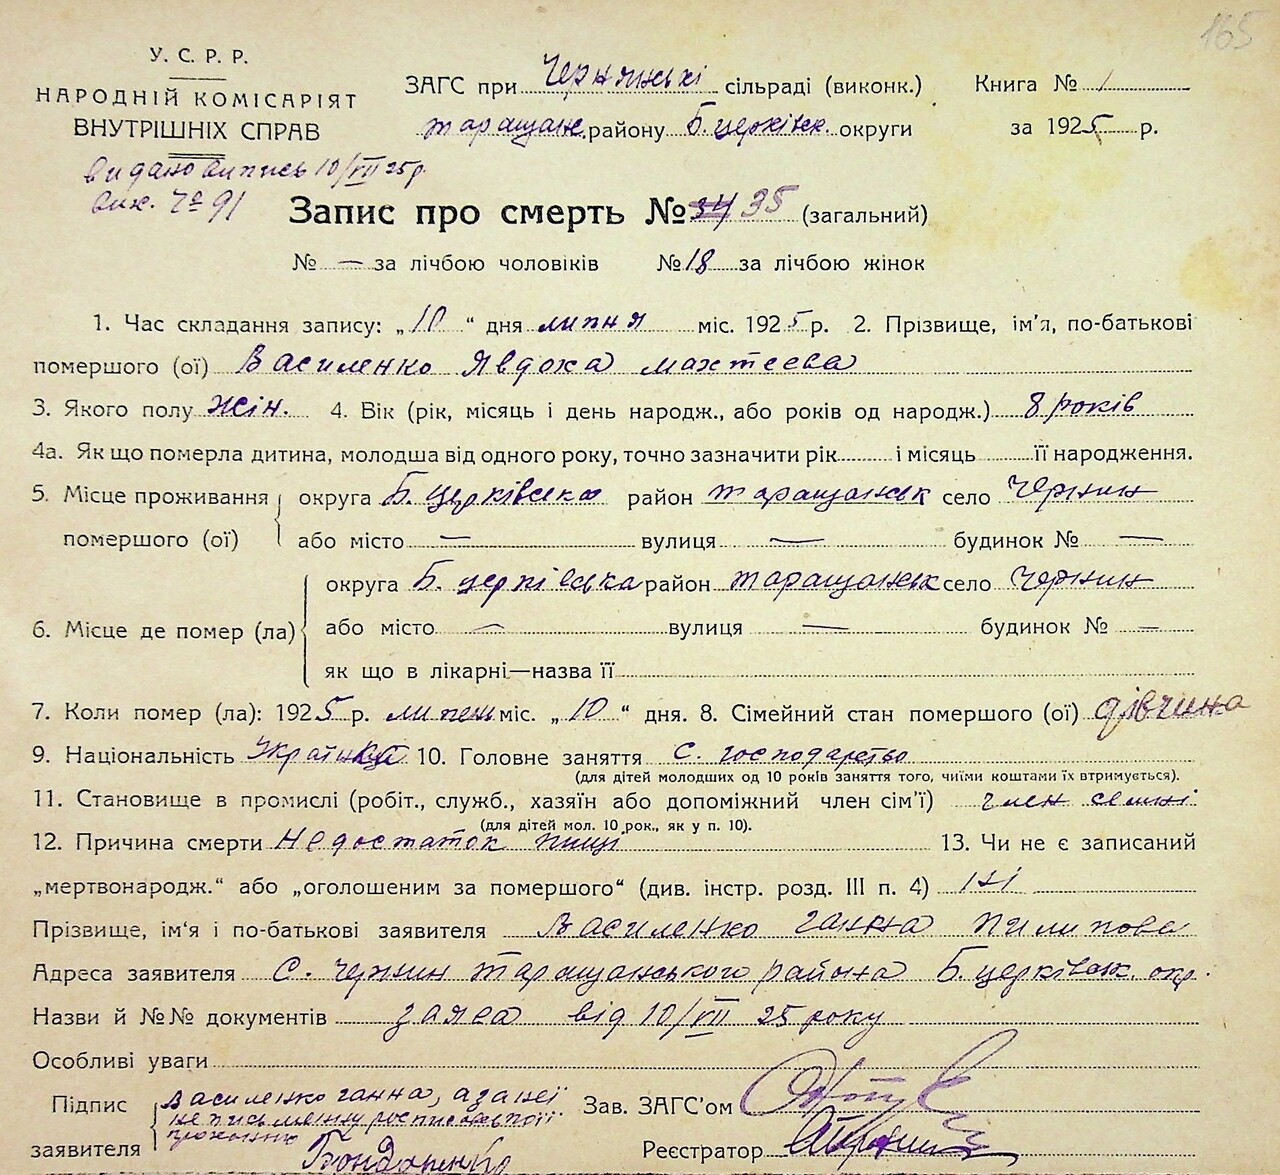 165
У. С. Р. Р.
НАРОДНІЙ КОМІСАРІЯТ
ВНУТРІШНІХ СПРАВ
ЗАГС при Чернинські сільраді (виконк.)
Таращанс. району Б. церківск. округи
Книга № 1
за 1925 р.
видано випись 10/VII 25 р.
вих. № 91
Запис про смерть № 34 35 (загальний)
№ — за лічбою чоловіків № 18 за лічбою жінок
1. Час складання запису: „10“ дня липня міс. 1925 р. 2. Прізвище, ім'я, по-батькові
помершого (ої) Василенко Явдоха Махтеева
3. Якого полу жін. 4. Вік (рік, місяць і день народж., або років од народж.) 8 років
4а. Як що померла дитина, молодша від одного року, точно зазначити рік і місяць її народження.
5. Місце проживання помершого (ої) округа Б. церківська район Таращанськ село Чернин
або місто — вулиця — будинок № —
6. Місце де помер (ла) округа Б. церківська район Таращанськ село Чернин
або місто — вулиця — будинок № —
як що в лікарні—назва її
7. Коли помер (ла): 1925 р. липня міс. „10“ дня. 8. Сімейний стан помершого (ої) дівчина
9. Національність Українка 10. Головне заняття С. господарство
(для дітей молодших од 10 років заняття того, чиїми коштами їх втримується).
11. Становище в промислі (робіт., служб., хазяїн або допоміжний член сім'ї) член семні
(для дітей мол. 10 рок., як у п. 10).
12. Причина смерти Недостаток пищі 13. Чи не є записаний
„мертвонародж.“ або „оголошеним за помершого“ (див. інстр. розд. III п. 4) ні
Прізвище, ім'я і по-батькові заявителя Василенко Ганна Пилипова
Адреса заявителя С. Чернин Таращанського района Б. церківськ. окр.
Назви й №№ документів заява від 10/VII 25 року
Особливі уваги
Підпис заявителя Василенко Ганна, а за неї
неписьменну росписався по її
проханню Бондаренко
Зав. ЗАГС'ом
Реєстратор